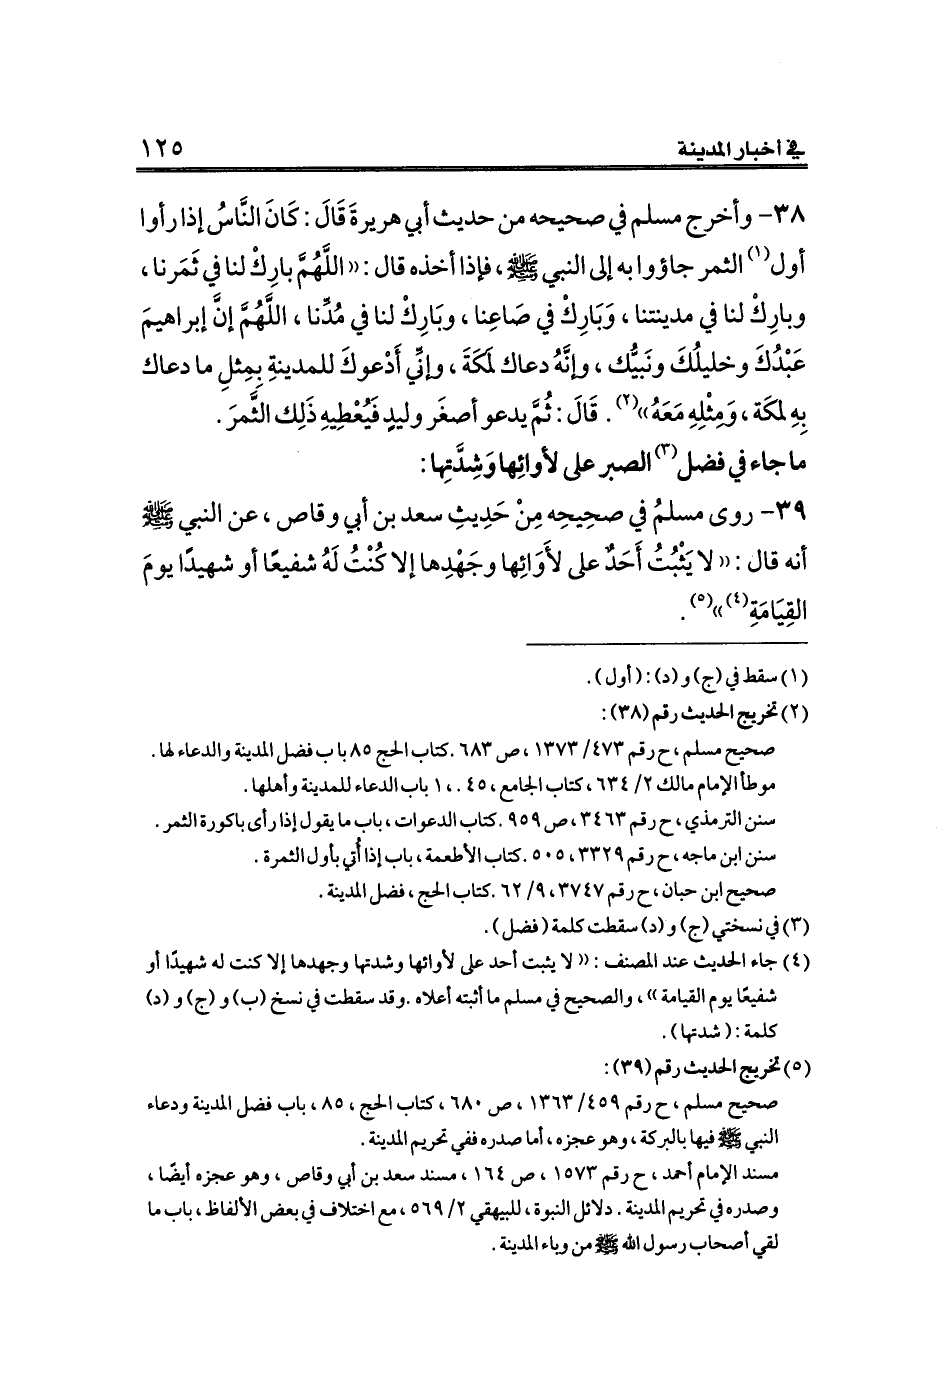 في أخبار المدينة ١٢٥
٣٨- وأخرج مسلم في صحيحه من حديث أبي هريرة قَالَ : كَانَ النَّاسُ إذا رأوا
أول(١) الثمر جاؤوا به إلى النبي ﷺ ، فإذا أخذه قال : « اللَّهُمَّ بارِكْ لنا في ثَمَرنا ،
وبارِكْ لنا في مدينتنا ، وَبَارِكْ في صَاعِنا ، وبَارِكْ لنا في مُدِّنا ، اللَّهُمَّ إنَّ إبراهيمَ
عَبْدُكَ وخليلُكَ ونَبيُّك ، وإنَّهُ دعاك لمكَةَ ، وإنِّي أَدْعوكَ للمدينةِ بِمِثلِ ما دعاك
بِهِ لمكَة ، وَمِثْلِهِ مَعَهُ »(٢) . قَالَ : ثُمَّ يدعو أصغَر وليدٍ فَيُعْطِيهِ ذَلِك الثَّمرَ .
ما جاء في فضل(٣) الصبر على لأوائِها وَشِدَّتِها :
٣٩- روى مسلمُ في صحِيحِه مِنْ حَدِيثِ سعد بن أبي وقاص ، عن النبي ﷺ
أنه قال : « لا يَثْبُتُ أَحَدٌ على لأوَائِها وجَهْدِها إلا كُنْتُ لَهُ شفيعًا أو شهيدًا يومَ
القِيَامَةِ(٤) »(٥) .
(١) سقط في (ج) و (د) : ( أول ) .
(٢) تخريج الحديث رقم (٣٨) :
صحيح مسلم ، ح رقم ٤٧٣/ ١٣٧٣ ، ص ٦٨٣ .كتاب الحج ٨٥ باب فضل المدينة والدعاء لها .
موطأ الإمام مالك ٢/ ٦٣٤ ، كتاب الجامع ، ٤٥ . ، ١ باب الدعاء للمدينة وأهلها .
سنن الترمذي ، ح رقم ٣٤٦٣ ، ص ٩٥٩ .كتاب الدعوات ، باب ما يقول إذا رأى باكورة الثمر .
سنن ابن ماجه ، ح رقم ٣٣٢٩ ، ٥٠٥ .كتاب الأطعمة ، باب إذا أُتي بأول الثمرة .
صحيح ابن حبان ، ح رقم ٣٧٤٧ ، ٩/ ٦٢ .كتاب الحج ، فضل المدينة .
(٣) في نسختي (ج) و (د) سقطت كلمة ( فضل ) .
(٤) جاء الحديث عند المصنف : « لا يثبت أحد على لأوائها وشدتها وجهدها إلا كنت له شهيدًا أو
شفيعًا يوم القيامة » ، والصحيح في مسلم ما أثبته أعلاه .وقد سقطت في نسخ (ب) و (ج) و (د)
كلمة : ( شدتها ) .
(٥) تخريج الحديث رقم (٣٩) :
صحيح مسلم ، ح رقم ٤٥٩/ ١٣٦٣ ، ص ٦٨٠ ، كتاب الحج ، ٨٥ ، باب فضل المدينة ودعاء
النبي ﷺ فيها بالبركة ، وهو عجزه ، أما صدره ففي تحريم المدينة .
مسند الإمام أحمد ، ح رقم ١٥٧٣ ، ص ١٦٤ ، مسند سعد بن أبي وقاص ، وهو عجزه أيضًا ،
وصدره في تحريم المدينة . دلائل النبوة ، للبيهقي ٢/ ٥٦٩ ، مع اختلاف في بعض الألفاظ ، باب ما
لقي أصحاب رسول الله ﷺ من وباء المدينة .